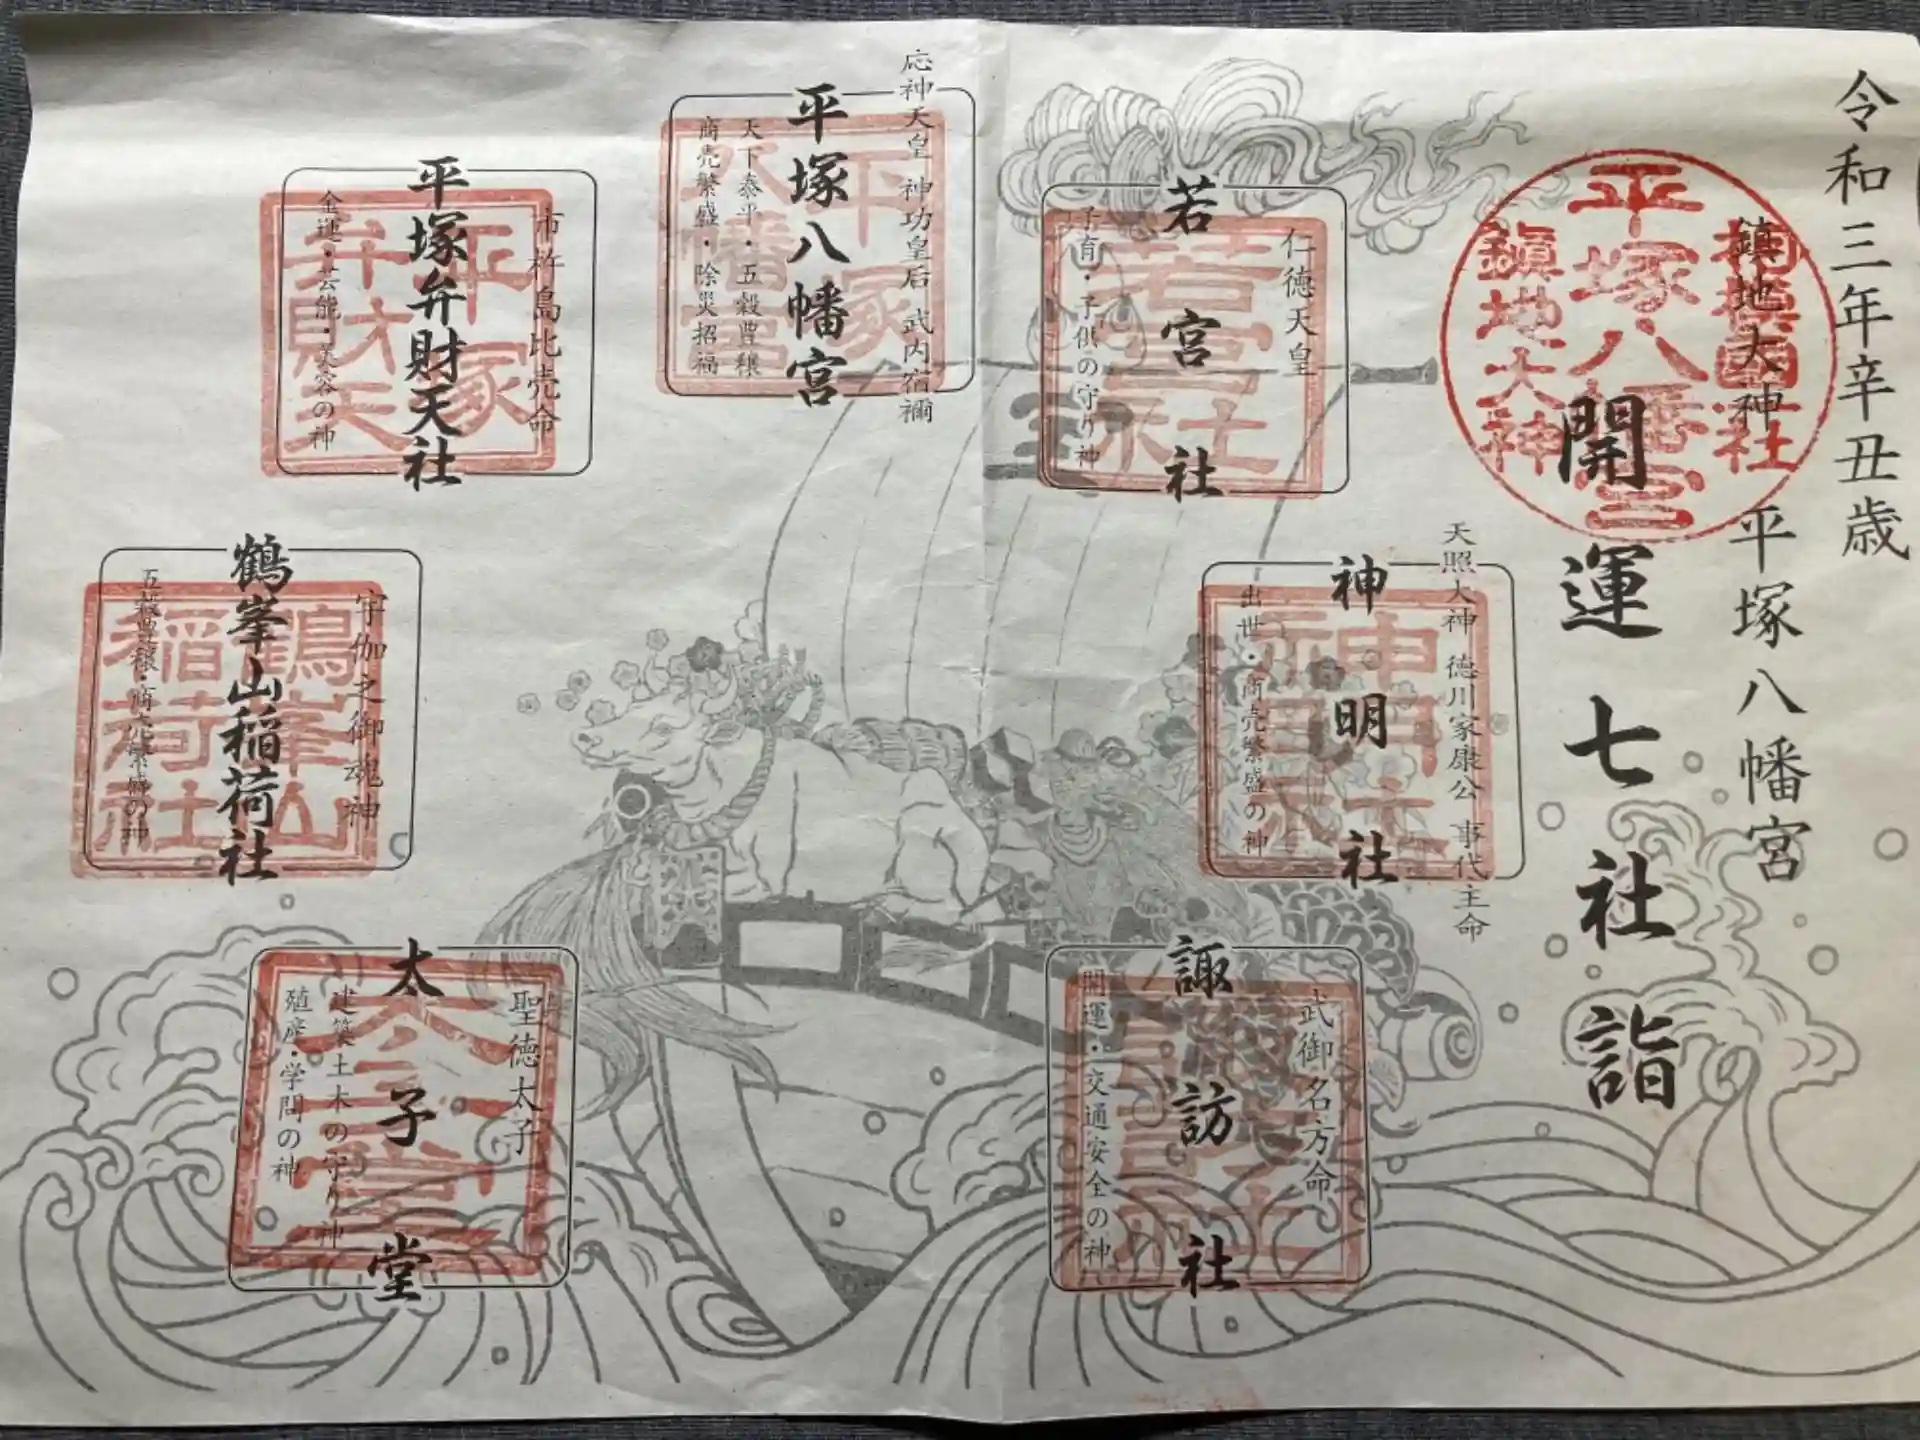 令和三年辛丑歳
鎮地大神 平塚八幡宮
開運七社詣
相模國一社
平塚八幡宮
鎮地大神
仁徳天皇
若宮社
子育・子供の守り神
若宮社
天照大神 徳川家康公 事代主命
神明社
出世・商売繁盛の神
神明社
武御名方命
諏訪社
開運・交通安全の神
応神天皇 神功皇后 武内宿禰
平塚八幡宮
天下泰平・五穀豊穣
商売繁盛・除災招福
平塚
八幡宮
市杵島比売命
平塚弁財天社
金運・芸能・美容の神
平塚
弁財天
宇伽之御魂神
鶴峯山稲荷社
五穀豊穣・商売繁盛の神
鶴峯山
稲荷社
聖徳太子
太子堂
建築土木の守り神
殖産・学問の神
太子堂